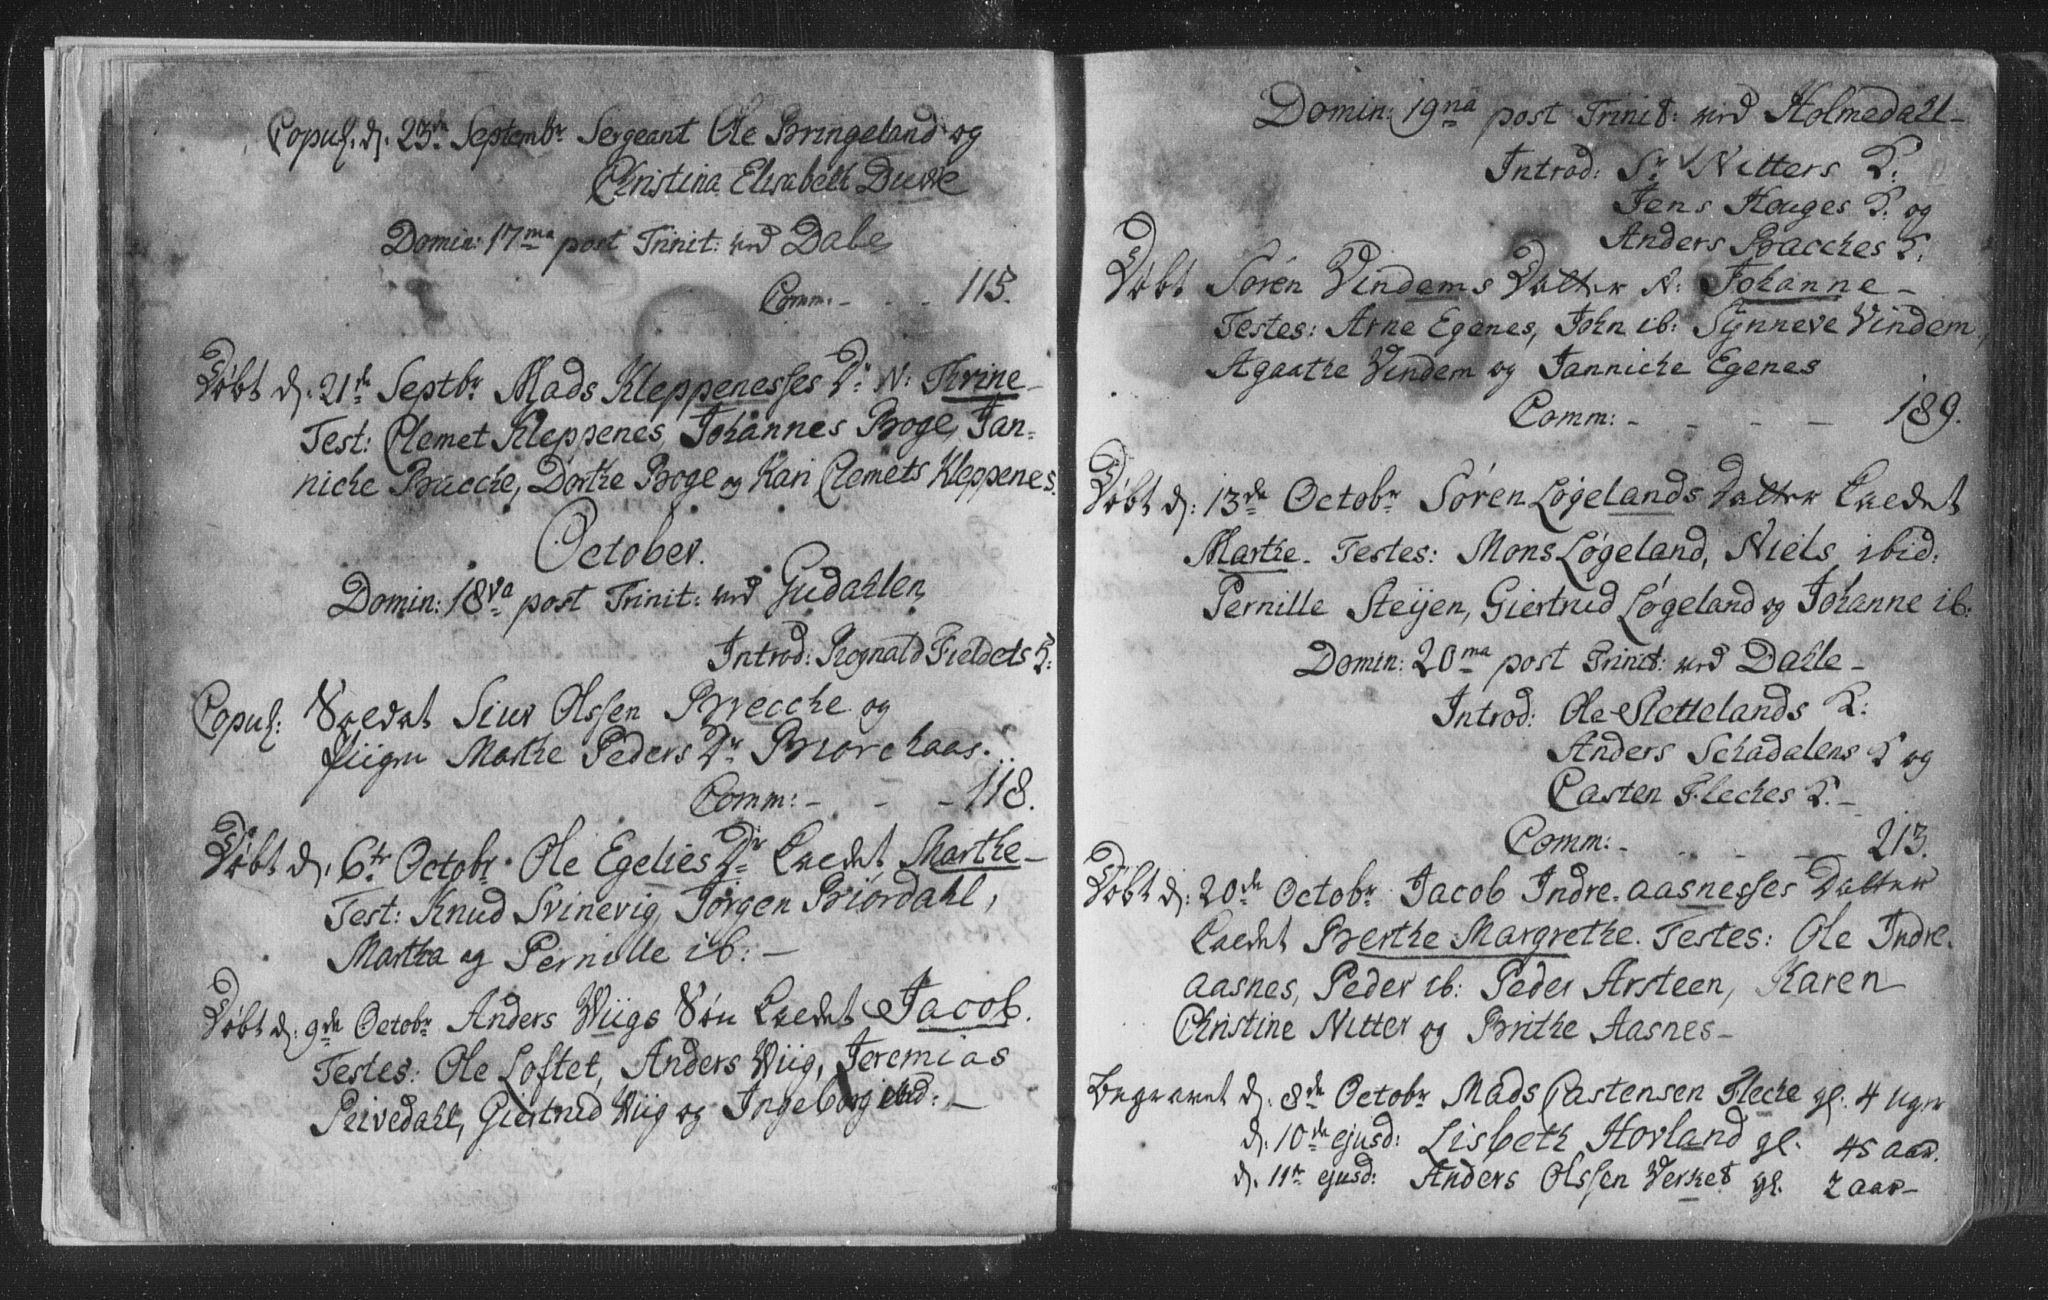 Copul. d. 23de Septembr Sergeant Ole Bringeland og
Christina Elisabeth Duvre
Domin: 17ma post Trinit: ved Dale
Comm: - - - 115.
Døbt d. 21de Septbr Mads Kleppenesses Dr N: Thrine -
Test: Clemet Kleppenes, Johannes Boge, Jan=
niche Bricche, Dorthe Boge og Kari Clemets Kleppenes.
October.
Domin: 18va post Trinit: ved Gudahlen
Introd: Rognald Fieldets K:
Copul: Soldat Siur Olssen Brecche og
Piigen Marthe Peders Dr Biorchaas.
Comm: - - - 118.
Døbt d. 6te Octobr Ole Egelies Dr kaldet Marthe -
Test: Knud Svinevig, Jørgen Biørdahl,
Martha og Pernille ib: -
Døbt d: 9de Octobr Anders Wiigs Søn kaldet Jacob.
Testes: Ole Loftet, Anders Wiig, Jeremias
Rivedahl, Giertrud Wiig og Ingeborg ibid: -
Domin: 19na post Trinit: ved Holmedahl -
Introd: Sr Nitters K:
Jens Houges K: og
Anders Bacches K.
Døbt Søren Vindems Datter N: Johanne -
Testes: Arne Egenes, John ib: Synneve Vindem,
Agaathe Vindem og Janniche Egenes
Comm: - - - - 189.
Døbt d: 13de Octobr Søren Løgelands Datter kaldet
Marthe. Testes: Mons Løgeland, Niels ibid:
Pernille Steijen, Giertrud Løgeland og Johanne ib:
Domin: 20ma post Trinit: ved Dahle -
Introd: Ole Slettelands K:
Anders Schadalens K og
Casten Fleches K. -
Comm: - - - - 213.
Døbt d: 20de Octobr Jacob Indre-aasnesses Datter
kaldet Berthe Margrethe. Testes: Ole Indre-
aasnes, Peder ib: Peder Arsteen, Karen
Christine Nitter og Brithe Aasnes -
Begravet d. 8de Octobr Mads Castensen Fleche gl. 4 uger
d. 10de ejusd: Lisbeth Hovland gl. 45 aar.
d. 11te ejusd: Anders Olssen Verket gl. 2 aar -